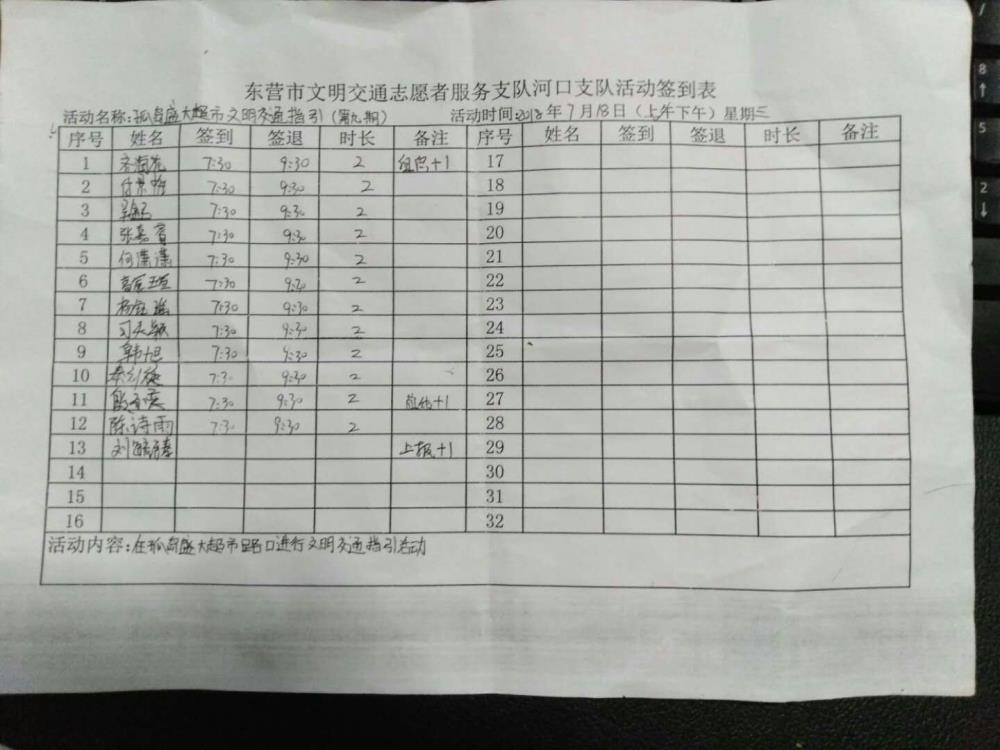 东营市文明交通志愿者服务支队河口支队活动签到表
活动名称:孤岛盛大超市文明交通指引(第九期) 活动时间:2018年7月18日(上午下午)星期三
序号 姓名 签到 签退 时长 备注 序号 姓名 签到 签退 时长 备注
1 7:30 9:30 2 组织+1 17
2 7:30 9:30 2 18
3 7:30 9:30 2 19
4 张嘉 7:30 9:30 2 20
5 何潇潇 7:30 9:30 2 21
6 7:30 9:30 2 22
7 杨 7:30 9:30 2 23
8 司 7:30 9:30 2 24
9 韩旭 7:30 9:30 2 25
10 7:30 9:30 2 26
11 7:30 9:30 2 +1 27
12 陈诗雨 7:30 9:30 2 28
13 刘 上报+1 29
14 30
15 31
16 32
活动内容:在孤岛盛大超市路口进行文明交通指引活动
8
5
2